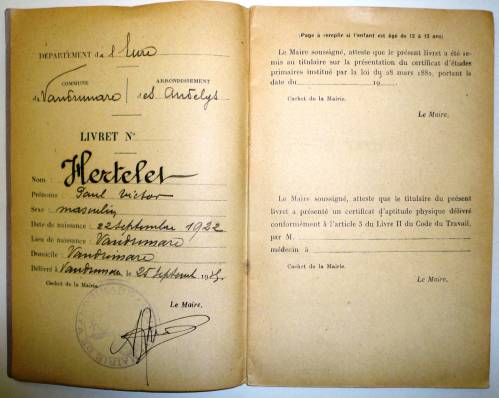 DÉPARTEMENT de l'Eure
COMMUNE
de Vandrimare
ARRONDISSEMENT
des Andelys
LIVRET N°
Nom : Hertelet
Prénoms : Paul Victor
Sexe masculin
Date de naissance : 22 Septembre 1922
Lieu de naissance : Vandrimare
Domicile Vandrimare
Délivré à Vandrimare le 25 Septembre
Cachet de la Mairie.
Le Maire,
(Page à remplir si l'enfant est âgé de 12 à 13 ans)
Le Maire soussigné, atteste que le présent livret a été re-
mis au titulaire sur la présentation du certificat d'études
primaires institué par la loi du 28 mars 1882, portant la
date du 19
Cachet de la Mairie.
Le Maire,
Le Maire soussigné, atteste que le titulaire du présent
livret a présenté un certificat d'aptitude physique délivré
conformément à l'article 3 du Livre II du Code du Travail,
par M.
médecin à
Cachet de la Mairie.
Le Maire,